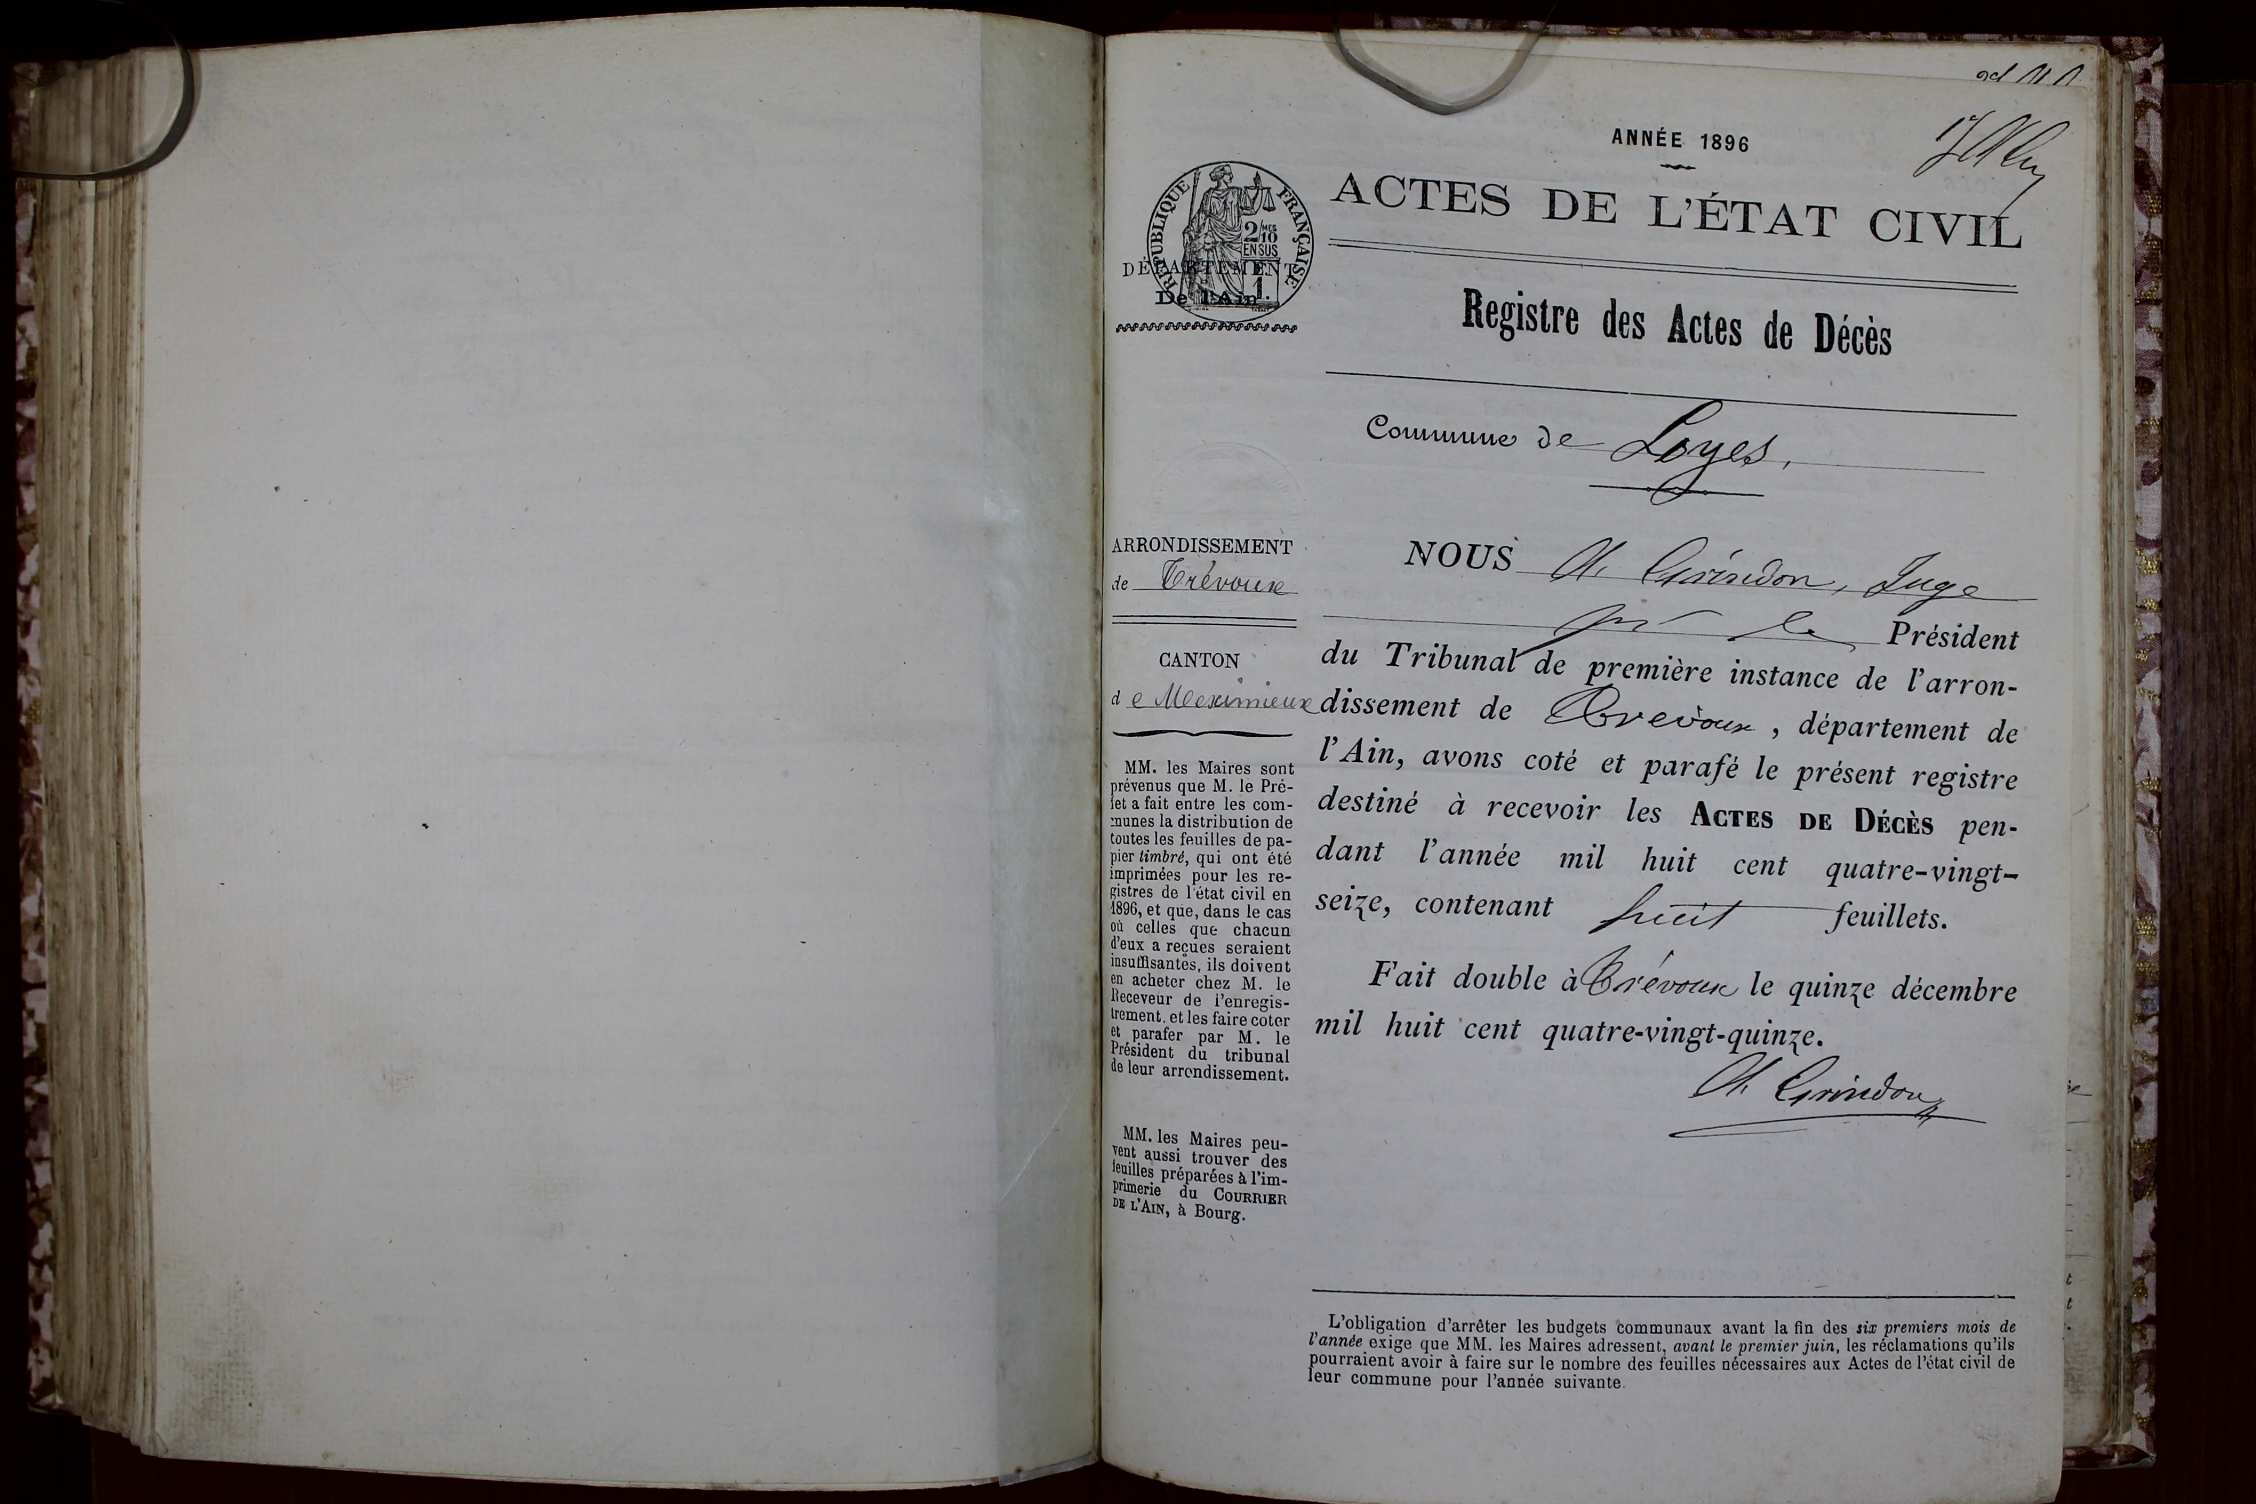 ANNÉE 1896
ACTES DE L'ÉTAT CIVIL
RÉPUBLIQUE FRANÇAISE
2/10 MES
EN SUS
1.
DÉPARTEMENT
De l'Ain
Registre des Actes de Décès
Commune de Loyes,
ARRONDISSEMENT
de Trévoux
CANTON
de Meximieux
MM. les Maires sont
prévenus que M. le Pré-
fet a fait entre les com-
munes la distribution de
toutes les feuilles de pa-
pier timbré, qui ont été
imprimées pour les re-
gistres de l'état civil en
1896, et que, dans le cas
où celles que chacun
d'eux a reçues seraient
insuffisantes, ils doivent
en acheter chez M. le
Receveur de l'enregis-
trement, et les faire coter
et parafer par M. le
Président du tribunal
de leur arrondissement.
MM. les Maires peu-
vent aussi trouver des
feuilles préparées à l'im-
primerie du COURRIER
DE L'AIN, à Bourg.
NOUS Ch. Grindon, Juge
pr le Président
du Tribunal de première instance de l'arron-
dissement de Trévoux, département de
l'Ain, avons coté et parafé le présent registre
destiné à recevoir les ACTES DE DÉCÈS pen-
dant l'année mil huit cent quatre-vingt-
seize, contenant huit feuillets.
Fait double à Trévoux le quinze décembre
mil huit cent quatre-vingt-quinze.
Ch. Grindon
L'obligation d'arrêter les budgets communaux avant la fin des six premiers mois de
l'année exige que MM. les Maires adressent, avant le premier juin, les réclamations qu'ils
pourraient avoir à faire sur le nombre des feuilles nécessaires aux Actes de l'état civil de
leur commune pour l'année suivante.